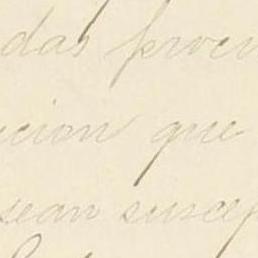 das prove
cion que
sean suscep